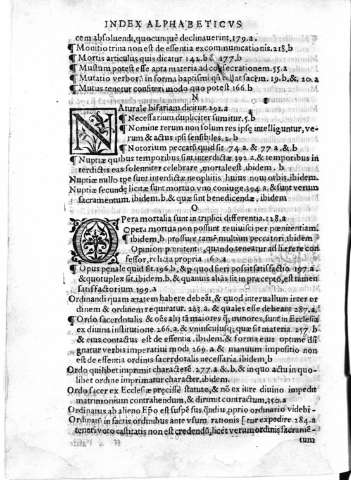 INDEX ALPHABETICVS
cem absoluendi, quocunque declinauerint, 179.a.
¶ Monitio trina non est de essentia excommunicationis. 218,b
¶ Mortis articulus quis dicatur 142.b & 177.b
¶ Mustum potest esse apta materia ad consecrationem. 55.a
¶ Mutatio verborũ in forma baptismi 19.b, & 20.a
¶ Mutus tenetur confiteri modo quo potest 166.b
N
NAturale bifariam dicitur 292.a
¶ Necessarium dupliciter sumitur. 5.b
¶ Nomine rerum non solum res ipsę intelliguntur, ve
rum & actus ipsi sensibiles. 2.b
¶ Notorium peccatũ quid sit 74.a & 77.a &,b
¶ Nuptiæ quibus temporibus sint interdictæ 392.a, & temporibus in
terdictis eas solemniter celebrare, mortale est, ibidem.b
Nuptiæ nullo iure sunt interdictæ neophitis huius noui orbis, ibidem.
Nuptiæ secundę licitæ sunt mortuo vno coniuge. 394.a, & sunt verum
sacramentum, ibidem.b. & quæ sint benedicendæ, ibidem
O
OPera mortalia sunt in triplici differentia. 128.a
Opera mortua non possunt reuiuisci per pœnitentiam,
ibidem,b prosunt tamẽ multum peccatori, ibidem
Opinionẽ pœnitentis, quando teneatur adherere con
fessor, relicta propria 162.a
¶ Opus penale quid sit 196.b, & quod fieri possit satisfactio 197.a
& quotuplex sit, ibidem.b, & quamuis alias sit in præcepto, est tamen
satisfactorium. 199.a
Ordinandi quam ætatem habere debeãt, & quod interuallum inter or
dinem & ordinem requiratur. 283.a, & quales esse debeant 287.a,
¶ Ordo sacerdotalis & oẽs alij tã maiores q̃ minores, sunt in Ecclesia
ex diuina institutione 266.a & vniuscuiusq; quæ sit materia 257.b
& eius contactus est de essentia. ibidem, & forma eius optime desi
gnatur verbis imperatiui modi 269.a & manuum impositio non
est de essentia ordinis sacerdotalis necessaria ibidem,b
Ordo quilibet imprimit characterẽ. 277.a.&.b, & in quo actu in quo
libet ordine imprimatur character, ibidem.
Ordo sacer ex Ecclesiæ præcisse statuto, & nõ ex iure diuino impedit
matrimonium contrahendum, & dirimit contractum, 350.a
Ordinatus ab alieno Epõ est suspẽsus, quidiu, pprio ordinario videbi-
Ordinatĩ in sacris ordinibus ante vsum rationis [tur expedire 284.a
tenetr voto castitatis non est credendũ, licet verum ordinis sacramẽ-
tum